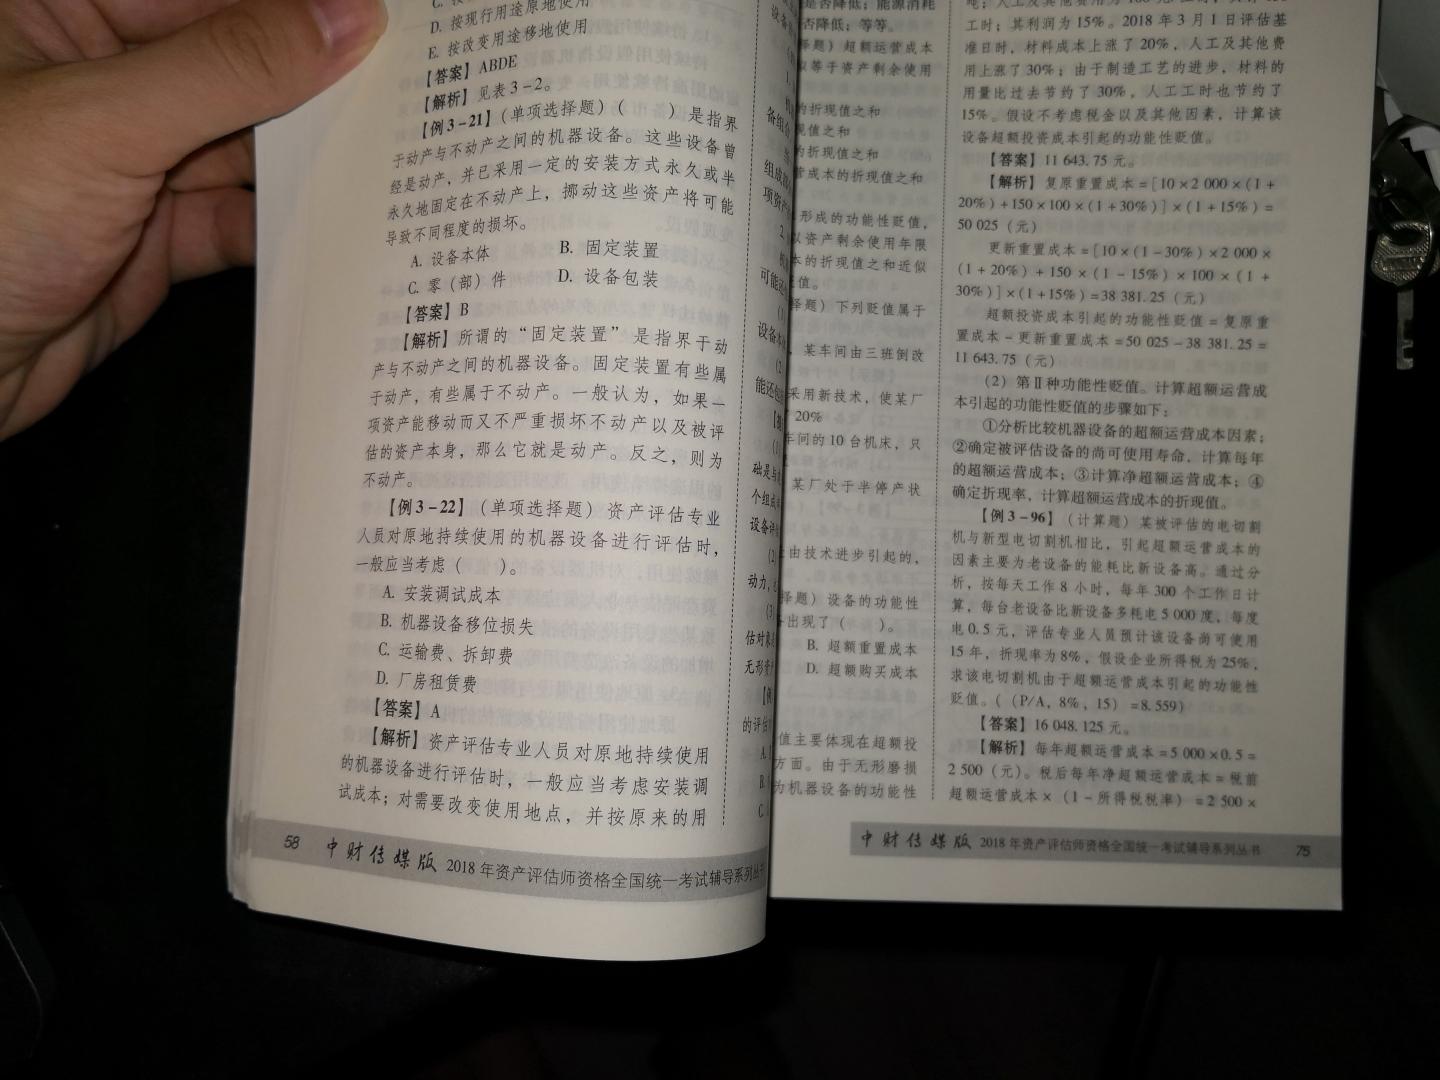 D. 按现行用途原地使用
E. 按改变用途移地使用
【答案】ABDE
【解析】见表3-2。
【例3-21】（单项选择题）（　　）是指界
于动产与不动产之间的机器设备。这些设备曾
经是动产，并已采用一定的安装方式永久或半
永久地固定在不动产上，挪动这些资产将可能
导致不同程度的损坏。
A. 设备本体　B. 固定装置
C. 零（部）件　D. 设备包装
【答案】B
【解析】所谓的“固定装置”是指界于动
产与不动产之间的机器设备。固定装置有些属
于动产，有些属于不动产。一般认为，如果一
项资产能移动而又不严重损坏不动产以及被评
估的资产本身，那么它就是动产。反之，则为
不动产。
【例3-22】（单项选择题）资产评估专业
人员对原地持续使用的机器设备进行评估时，
一般应当考虑（　　）。
A. 安装调试成本
B. 机器设备移位损失
C. 运输费、拆卸费
D. 厂房租赁费
【答案】A
【解析】资产评估专业人员对原地持续使用
的机器设备进行评估时，一般应当考虑安装调
试成本；对需要改变使用地点，并按原来的用
58 中财传媒版 2018年资产评估师资格全国统一考试辅导系列丛书
设备
备组
组成
项资产
2.
可能
设备本
(2
能还包
(1
础是与
个组成
设备评
(2
动力，
(3
估对象
无形资
的评估
A.
B.
C.
是否降低；能源消耗
否降低；等等。
择题）超额运营成本
等于资产剩余使用
的折现值之和
现值之和
的折现值之和
营成本的折现值之和
形成的功能性贬值，
以资产剩余使用年限
本的折现值之和近似
值。
择题）下列贬值属于
，某车间由三班倒改
采用新技术，使某厂
了20%
车间的10台机床，只
，某厂处于半停产状
由技术进步引起的，
择题）设备的功能性
出现了（　　）。
B. 超额重置成本
D. 超额购买成本
值主要体现在超额投
方面。由于无形磨损
为机器设备的功能性
工时；其利润为15%。2018年3月1日评估基
准日时，材料成本上涨了20%，人工及其他费
用上涨了30%；由于制造工艺的进步，材料的
用量比过去节约了30%，人工工时也节约了
15%。假设不考虑税金以及其他因素，计算该
设备超额投资成本引起的功能性贬值。
【答案】11 643.75元。
【解析】复原重置成本=[10×2 000×(1+
20%)+150×100×(1+30%)]×(1+15%)=
50 025（元）
更新重置成本=[10×(1-30%)×2 000×
(1+20%)+150×(1-15%)×100×(1+
30%)]×(1+15%)=38 381.25（元）
超额投资成本引起的功能性贬值=复原重
置成本-更新重置成本=50 025-38 381.25=
11 643.75（元）
（2）第Ⅱ种功能性贬值。计算超额运营成
本引起的功能性贬值的步骤如下：
①分析比较机器设备的超额运营成本因素；
②确定被评估设备的尚可使用寿命，计算每年
的超额运营成本；③计算净超额运营成本；④
确定折现率，计算超额运营成本的折现值。
【例3-96】（计算题）某被评估的电切割
机与新型电切割机相比，引起超额运营成本的
因素主要为老设备的能耗比新设备高。通过分
析，按每天工作8小时，每年300个工作日计
算，每台老设备比新设备多耗电5 000度，每度
电0.5元，评估专业人员预计该设备尚可使用
15年，折现率为8%，假设企业所得税为25%，
求该电切割机由于超额运营成本引起的功能性
贬值。（（P/A，8%，15）=8.559）
【答案】16 048.125元。
【解析】每年超额运营成本=5 000×0.5=
2 500（元）。税后每年净超额运营成本=税前
超额运营成本×（1-所得税税率）=2 500×
中财传媒版 2018年资产评估师资格全国统一考试辅导系列丛书 75